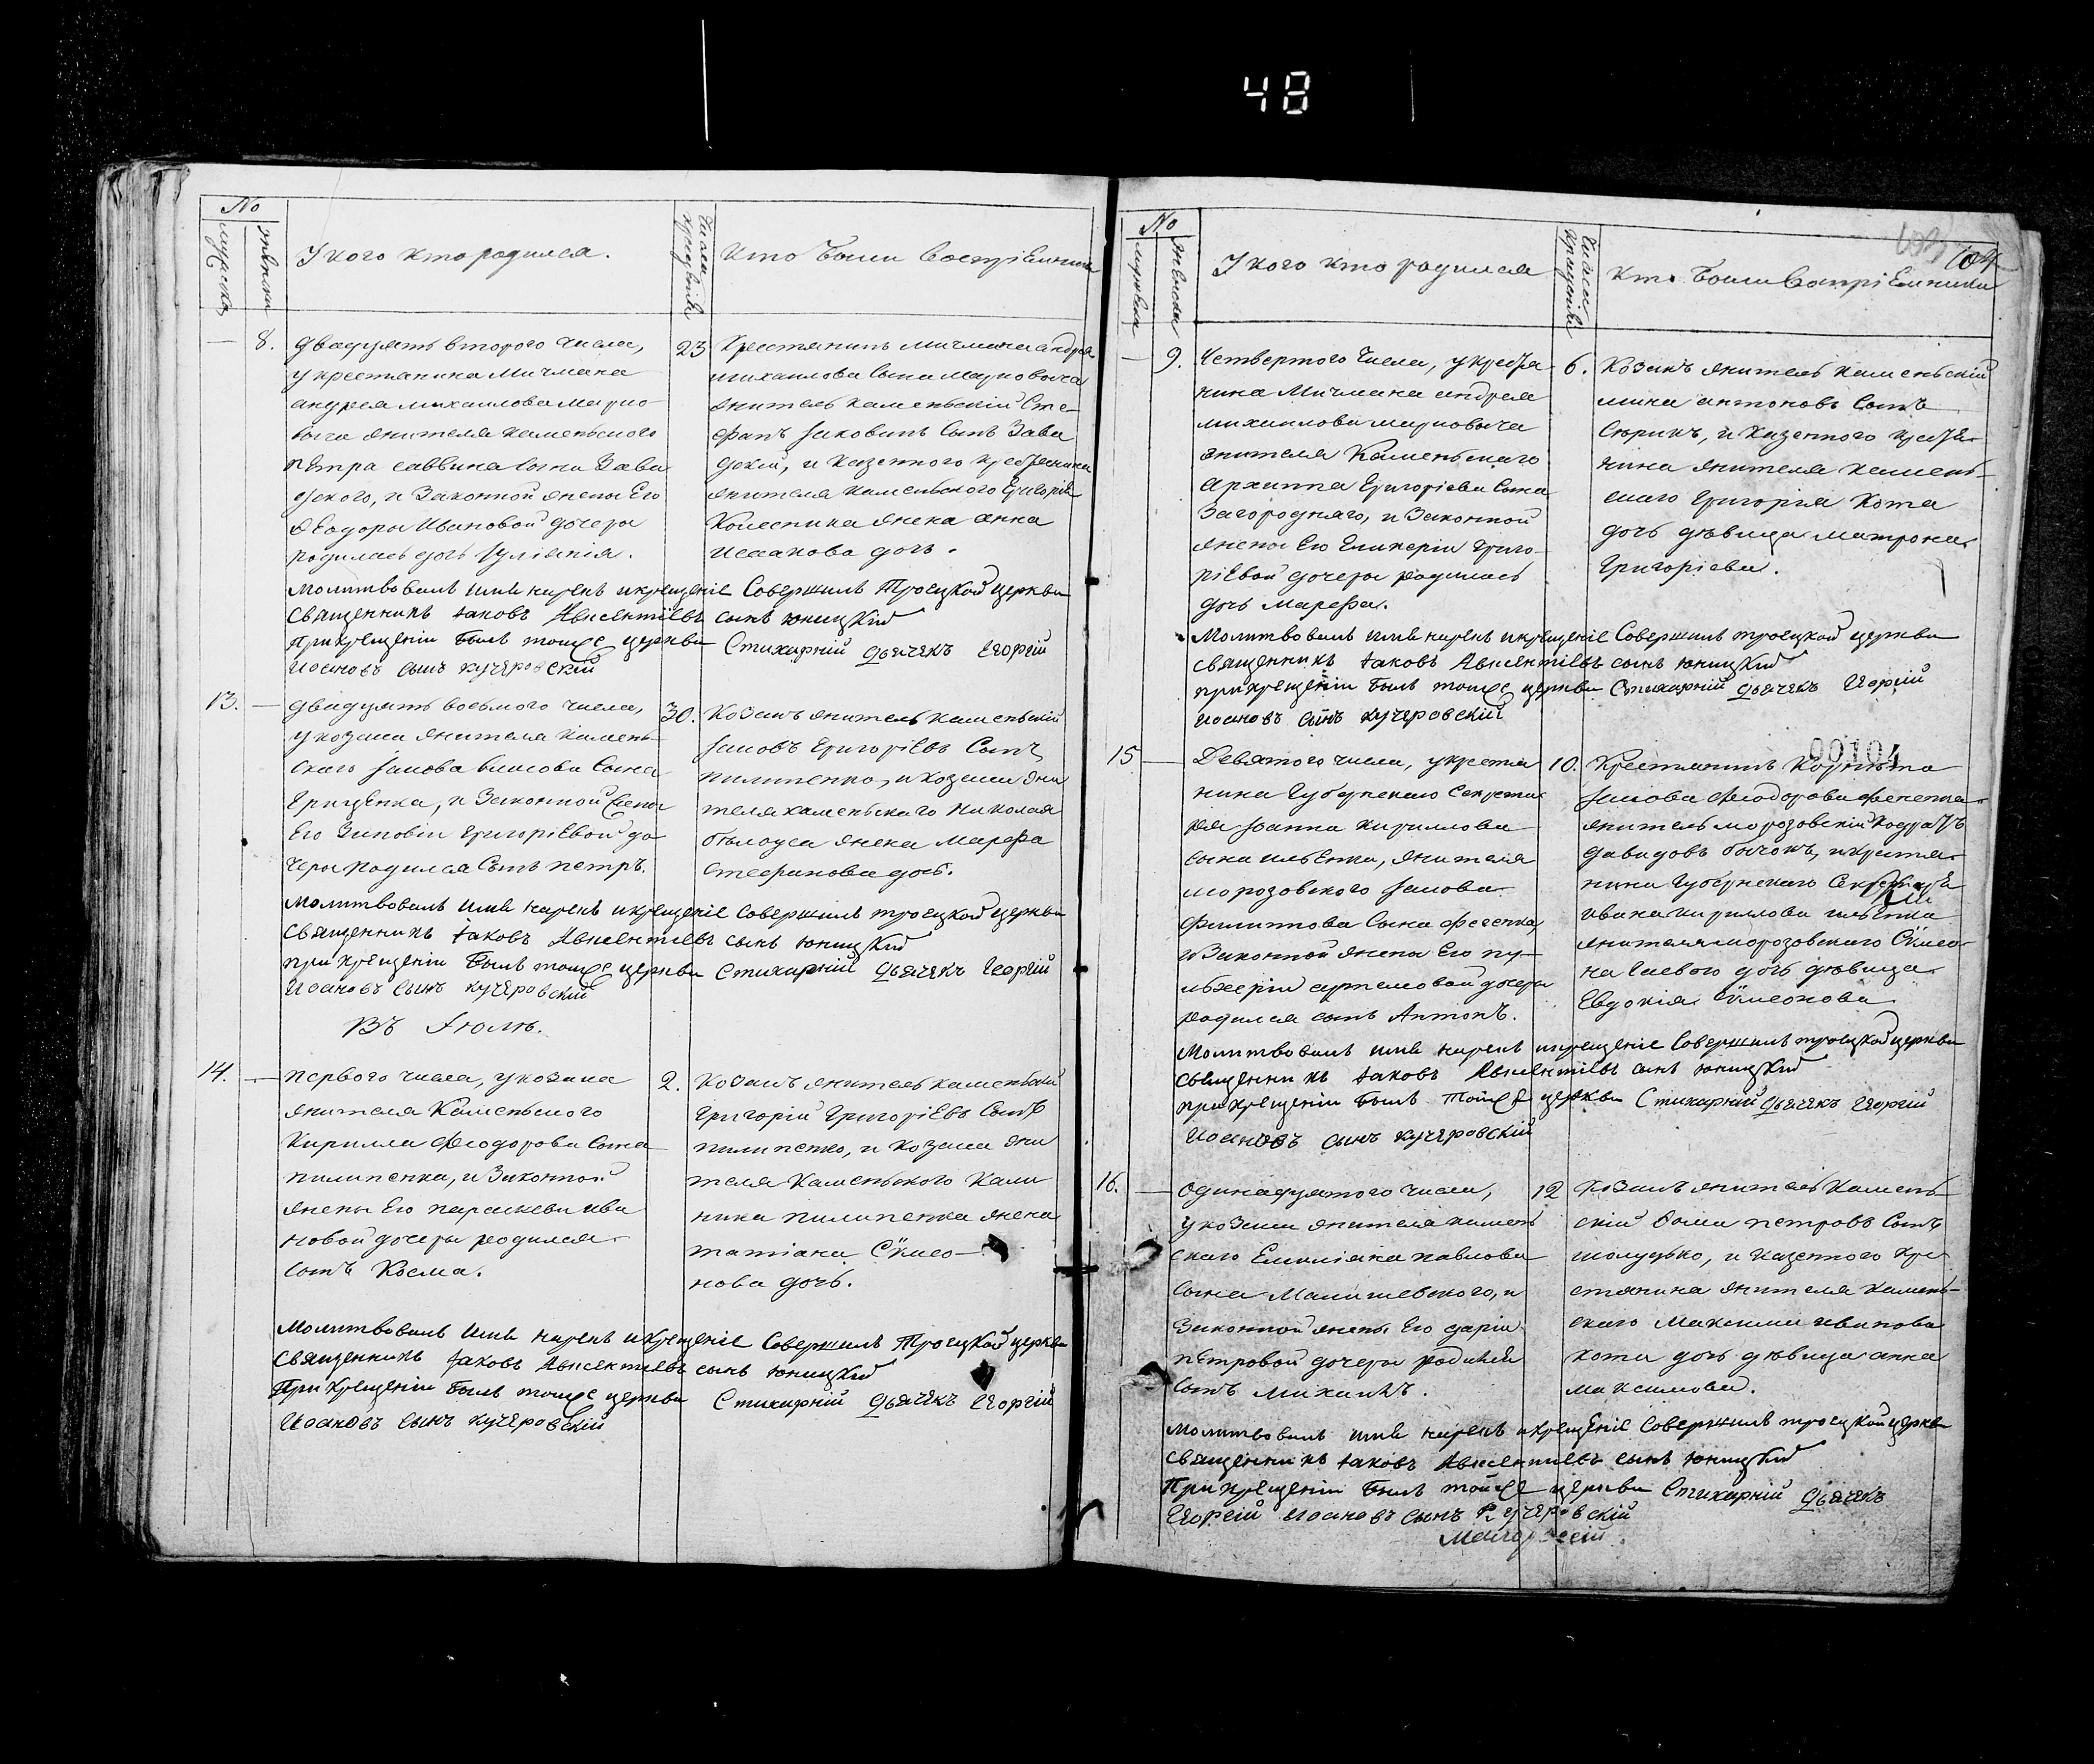 48
№
мужеска
женска
У кого кто родился.
Числа крещенія
Кто были воспріемники
8.
двадцять второго числа,
у крестянина Мичмана
андрея михаилова марко-
вича жителя каменьского
петра саввина сына Зава
дского, и Законной жены Его
Ѳеодоры Ивановой дочери
родилась дочь Іуліянія.
23
Крестянинъ мичмана андрея
михаилова сына марковича
житель каменьскій Сте-
фанъ Іаковинъ сынъ Зава
дскій, и Казенного крестянина
жителя каменьского Григорія
Колесника жена анна
исаакова дочь.
молитвовалъ имя нарекъ и крещеніе Совершилъ Троецкой церкви
священникъ Іаковъ Авксентіевъ сынъ юницкій
При крещеніи былъ тойже церкви Стихарній дьячекъ Георгій
Иоановъ сынъ кучеровскій
13.
двадцять восьмого числа,
у козака жителя камень-
ского Іакова власова сына
Грицѣнка, и Законной жены
Его Зиновіи григоріевой до
чери родился сынъ петръ.
30.
Козакъ житель каменьскій
Іаковъ Григоріевъ Сынъ
пилипенко, и козака жи
теля каменьского Николая
бѣлоуса жена Марфа
стефанова дочь.
молитвовалъ имя нарекъ и крещеніе совершилъ троецкой церкви
священникъ Іаковъ Авксентіевъ сынъ юницкій
при крещеніи былъ тойже церкви Стихарній дьячекъ Георгій
Иоановъ сынъ кучеровскій
Въ Іюлѣ.
14.
первого числа, у козака
жителя Каменьского
Кирилла Ѳеодорова сына
пилипенка, и Законной
жены Его параскеви ива
новой дочери родился
сынъ Косма.
2.
козакъ житель каменьскій
Григорій Григоріевъ Сынъ
пилипенко, и козака жи
теля Каменьского Кали
ника пилипенка жена
татіана Сѵмео-
нова дочь.
молитвовалъ имя нарекъ и крещеніе Совершилъ Троецкой церкви
священникъ Іаковъ Авксентіевъ сынъ юницкій
При крещеніи былъ тойже церкви Стихарній дьячекъ Георгій
Иоановъ сынъ кучеровскій
104
№
мужеска
женска
У кого кто родился
Числа крещенія
Кто были воспріемники
9.
Четвертого числа, у крестя
нина Мичмана андрея
михаилова марковича
жителя Каменьского
Архиппа Григоріева сына
Загородняго, и Законной
жены Его Гликеріи григо-
ріевой дочери родилась
дочь Марѳа.
6.
Козакъ житель каменьскій
мина антоновъ сынъ
Сѣрикъ, и казенного крестя-
нина жителя камень-
ского Григорія Кота
дочь дѣвица матрона
Григоріева.
молитвовалъ имя нарекъ и крещеніе Совершилъ троецкой церкви
священникъ Іаковъ Авксентіевъ сынъ юницкій
при крещеніи былъ тойже церкви Стихарній дьячекъ Георгій
иоановъ сынъ кучеровскій
00104
15
Девятого числа, у крестя
нина Губернского Секрета
ря Іоанна кириллова
сына ильенка, жителя
морозовского Іакова
Филиппова сына фесенка
и Законной жены Его пу-
льхеріи артемовой дочери
родился сынъ Антонъ.
10.
Крестянинъ Корнета
Іакова Ѳеодорова
житель морозовскій Кодратъ
давидовъ бычокъ, и крестя-
нина Губернского Секретаря
ивана кирилова ильенка
жителя морозовского Сѵмео-
на гаевого дочь дѣвица
Евдокія Сѵмеонова
молитвовалъ имя нарекъ и крещеніе Совершилъ троецкой церкви
священникъ Іаковъ Авксентіевъ сынъ юницкій
при крещеніи былъ тойже церкви Стихарній дьячекъ Георгій
Иоановъ сынъ кучеровскій
16.
Одинадцятого числа,
у козака жителя камень
ского Емиліяна павлова
сына Малишевского, и
Законной жены Его даріи
петровой дочери родился
сынъ михаилъ.
12
Козакъ житель Камень-
скій Ѳома петровъ Сынъ
шолудько, и казенного кре
стянина жителя камень-
ского Максима иванова
кота дочь дѣвица анна
максимова.
молитвовалъ имя нарекъ и крещеніе Совершилъ троецкой церкви
священникъ Іаковъ Авксентіевъ сынъ юницкій
При крещеніи былъ тойже церкви Стихарній дьячекъ
Георгій Иоановъ сынъ Кучеровскій